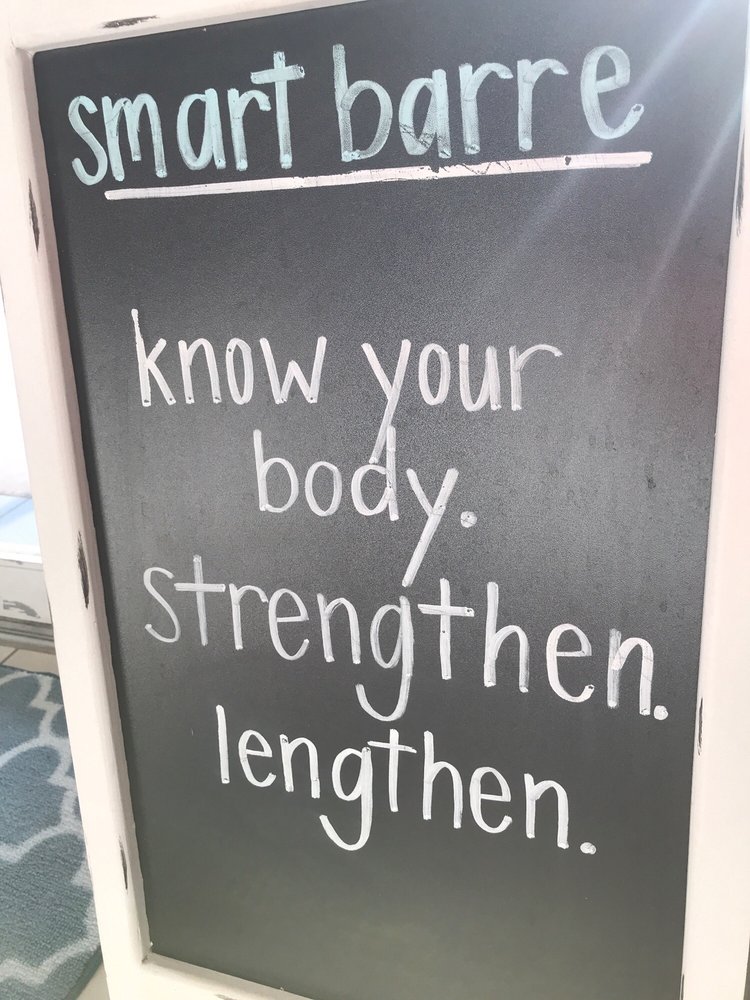 smart barre
know your
body.
strengthen.
lengthen.